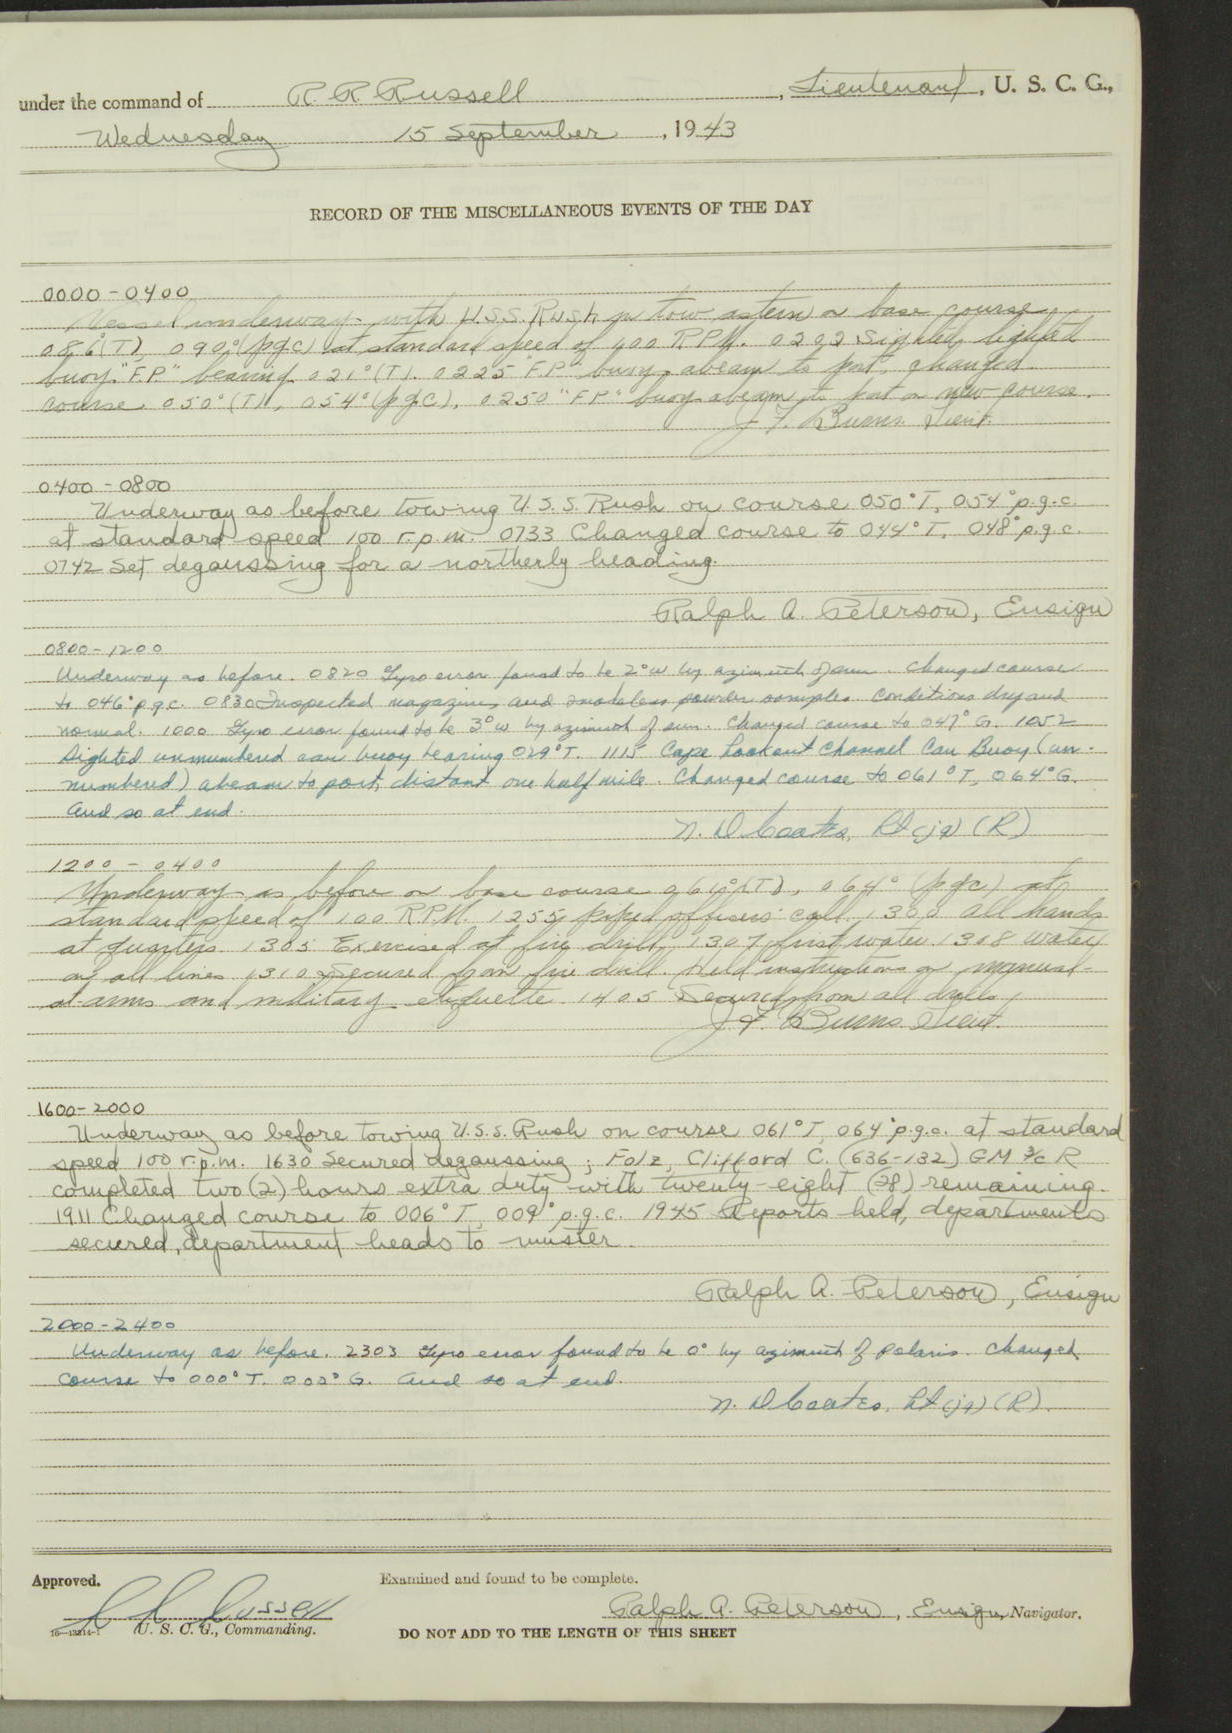 under the command of R. R. Russell, Lieutenant, U. S. C. G.,
Wednesday 15 September, 1943
RECORD OF THE MISCELLANEOUS EVENTS OF THE DAY
0000-0400
Vessel underway with U.S.S. Rush in tow astern on base course
086°(T), 090°(pgc) at standard speed of 100 RPM. 0202 Sighted lighted
buoy "F.P." bearing 021°(T). 0225 "F.P." buoy abeam to port, changed
course 050°(T), 054°(pgc). 0250 "F.P." buoy abeam to port on new course.
J. F. Burns Lieut.
0400-0800
Underway as before towing U.S.S. Rush on course 050°T, 054°p.g.c.
at standard speed 100 r.p.m. 0733 Changed course to 044°T, 048°p.g.c.
0742 Set degaussing for a northerly heading.
Ralph A. Peterson, Ensign
0800-1200
Underway as before. 0820 Gyro error found to be 2°W by azimuth of sun. Changed course
to 046° p.g.c. 0830 Inspected magazines and smokeless powder samples. Conditions dry and
normal. 1000 Gyro error found to be 3°W by azimuth of sun. Changed course to 047° G. 1052
Sighted unnumbered can buoy bearing 029°T. 1115 Cape Lookout Channel Can Buoy (un-
numbered) abeam to port, distant one half mile. Changed course to 061°T, 064°G.
And so at end.
N. D. Coates, Lt (jg) (R)
1200 - 0400
Underway as before on base course 061°(T), 064° (pgc) at
standard speed of 100 RPM. 1255 piped officers call. 1300 All hands
at quarters. 1305 Exercised at fire drill, 1307 first water. 1308 Water
on all lines. 1310 Secured from fire drill. Held instructions on manual-
at-arms and military etiquette. 1405 Secured from all drills.
J. F. Burns Lieut.
1600-2000
Underway as before towing U.S.S. Rush on course 061°T, 064°p.g.c. at standard
speed 100 r.p.m. 1630 Secured degaussing; Folz, Clifford C. (636-132) GM 3/c R
completed two (2) hours extra duty with twenty-eight (28) remaining.
1911 Changed course to 006°T, 009°p.g.c. 1945 Reports held, departments
secured, department heads to muster.
Ralph A. Peterson, Ensign
2000-2400
Underway as before. 2303 Gyro error found to be 0° by azimuth of Polaris. Changed
course to 000°T. 000°G. And so at end.
N. D. Coates, Lt (jg) (R).
Approved. Examined and found to be complete.
R. R. Russell Ralph A. Peterson, Ensign, Navigator.
U. S. C. G., Commanding. DO NOT ADD TO THE LENGTH OF THIS SHEET